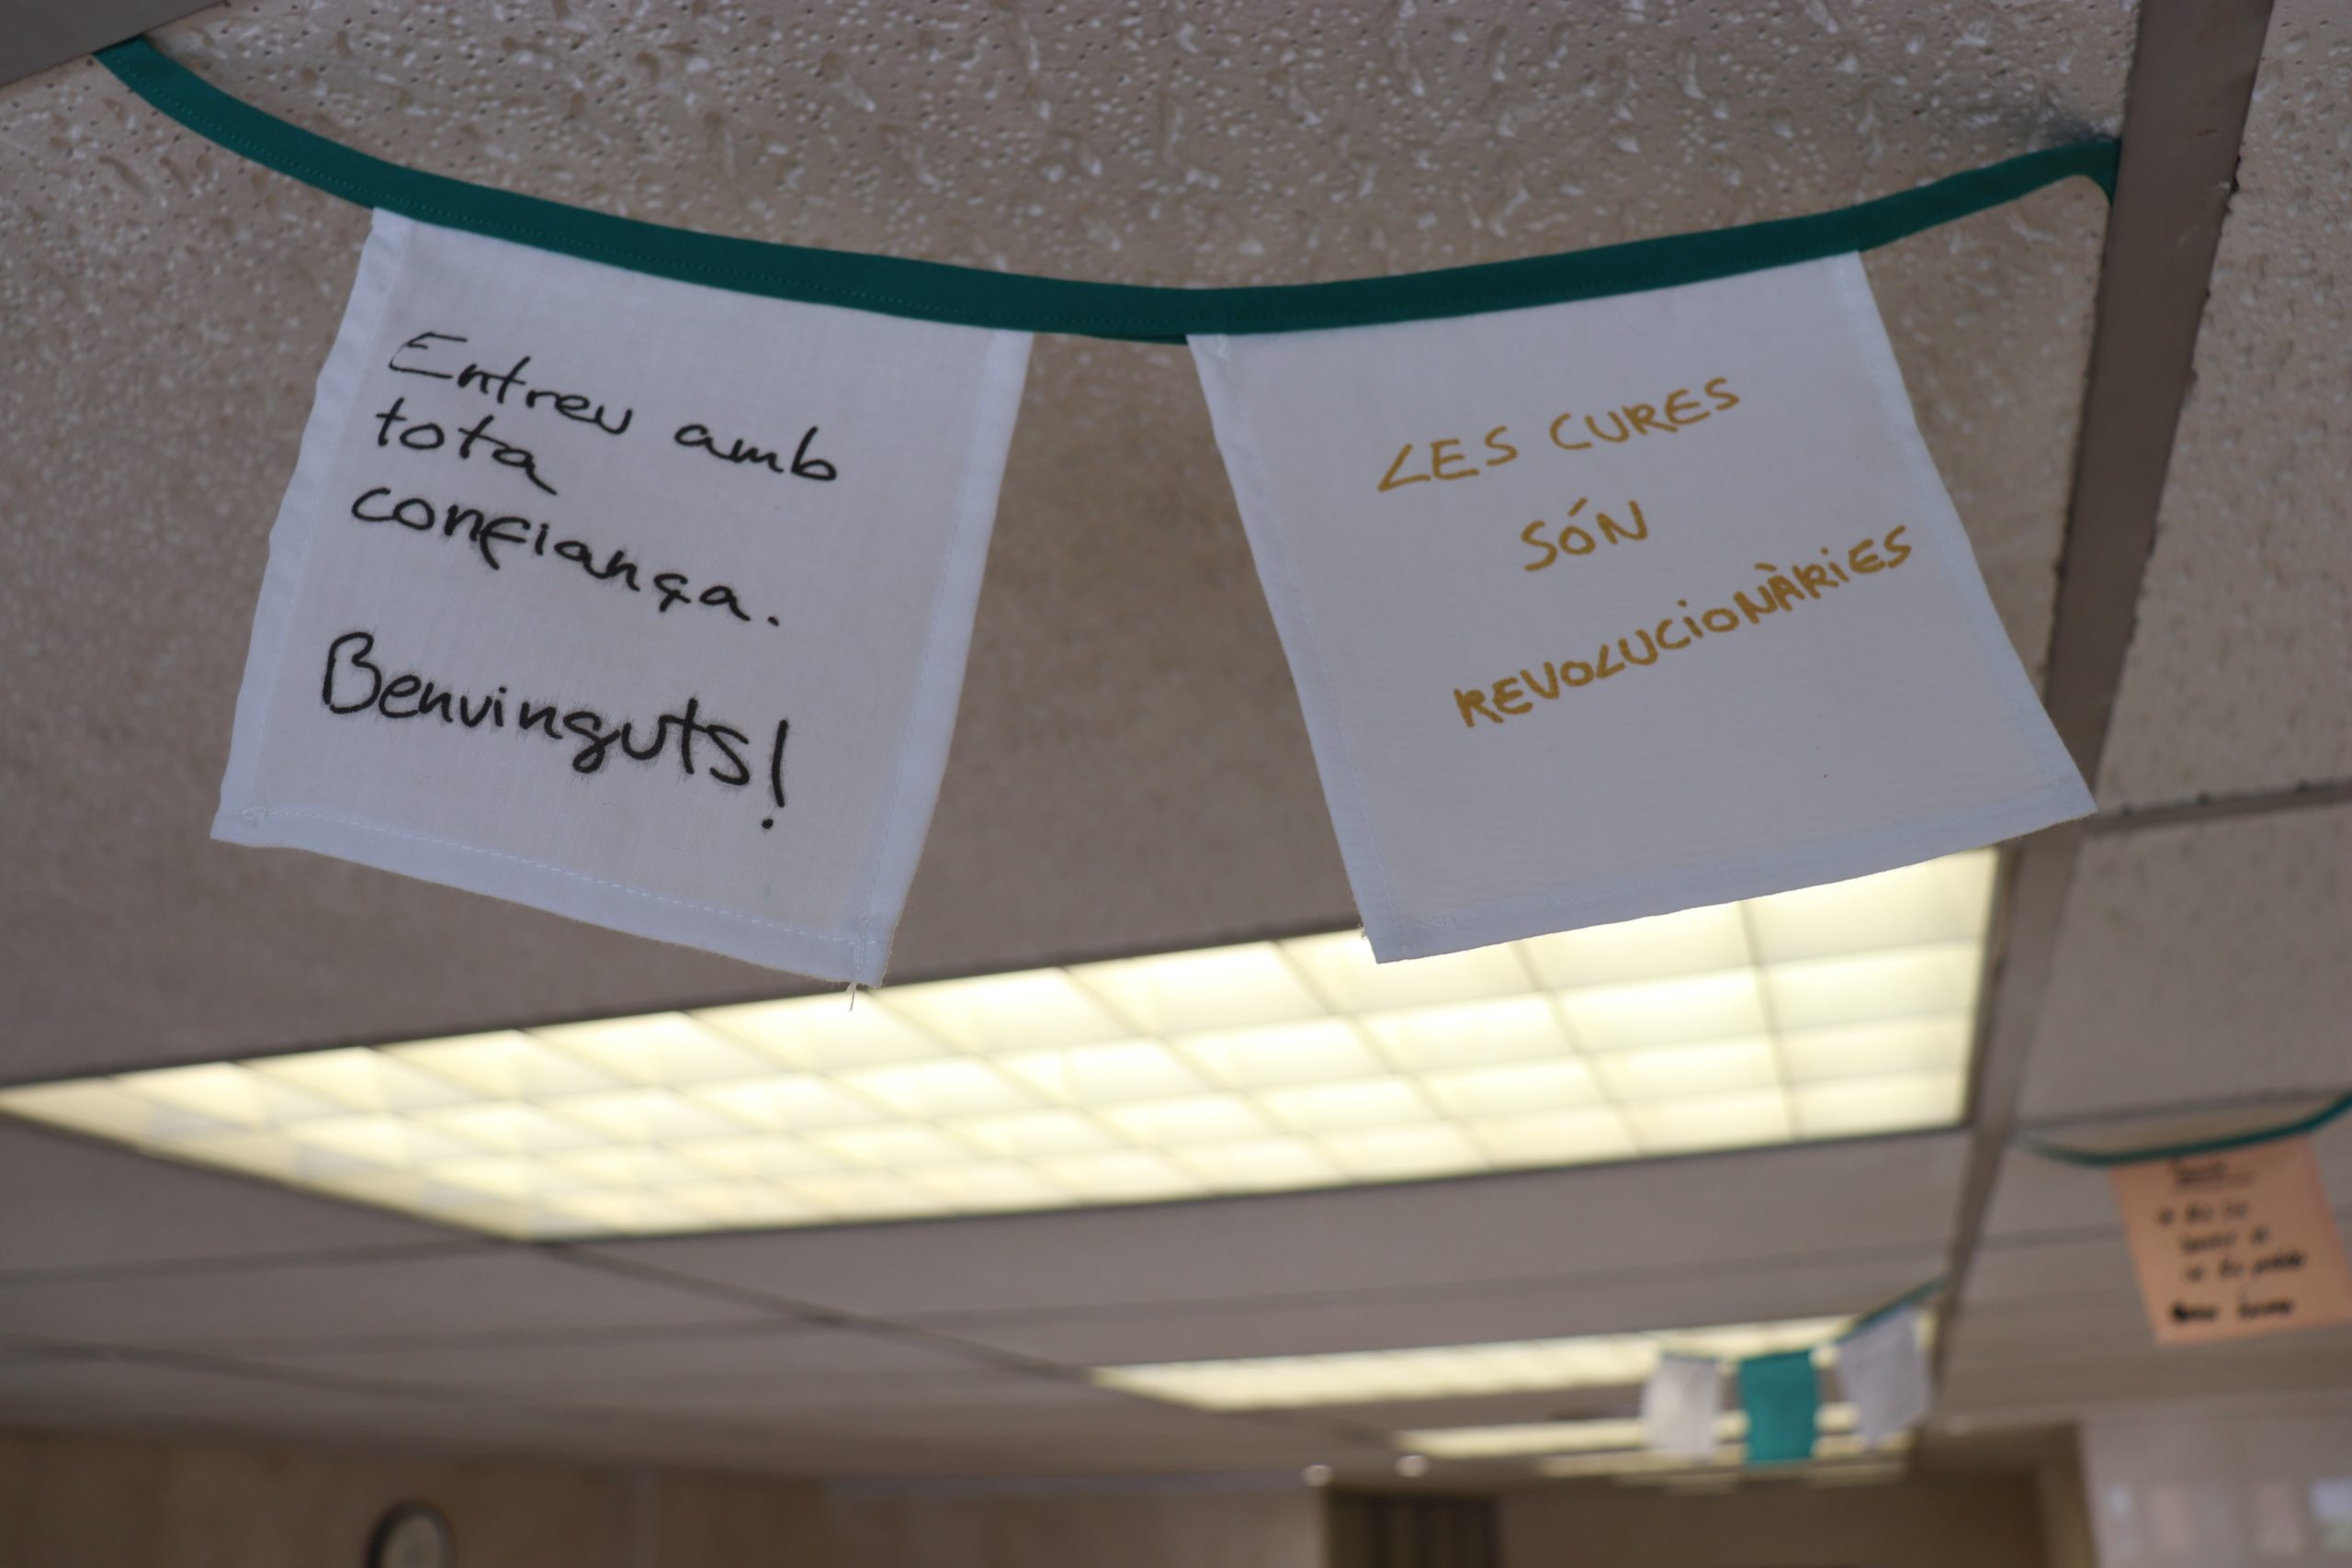 Entreu amb
tota
confiança.
Benvinguts!
LES CURES
SÓN
REVOLUCIONÀRIES